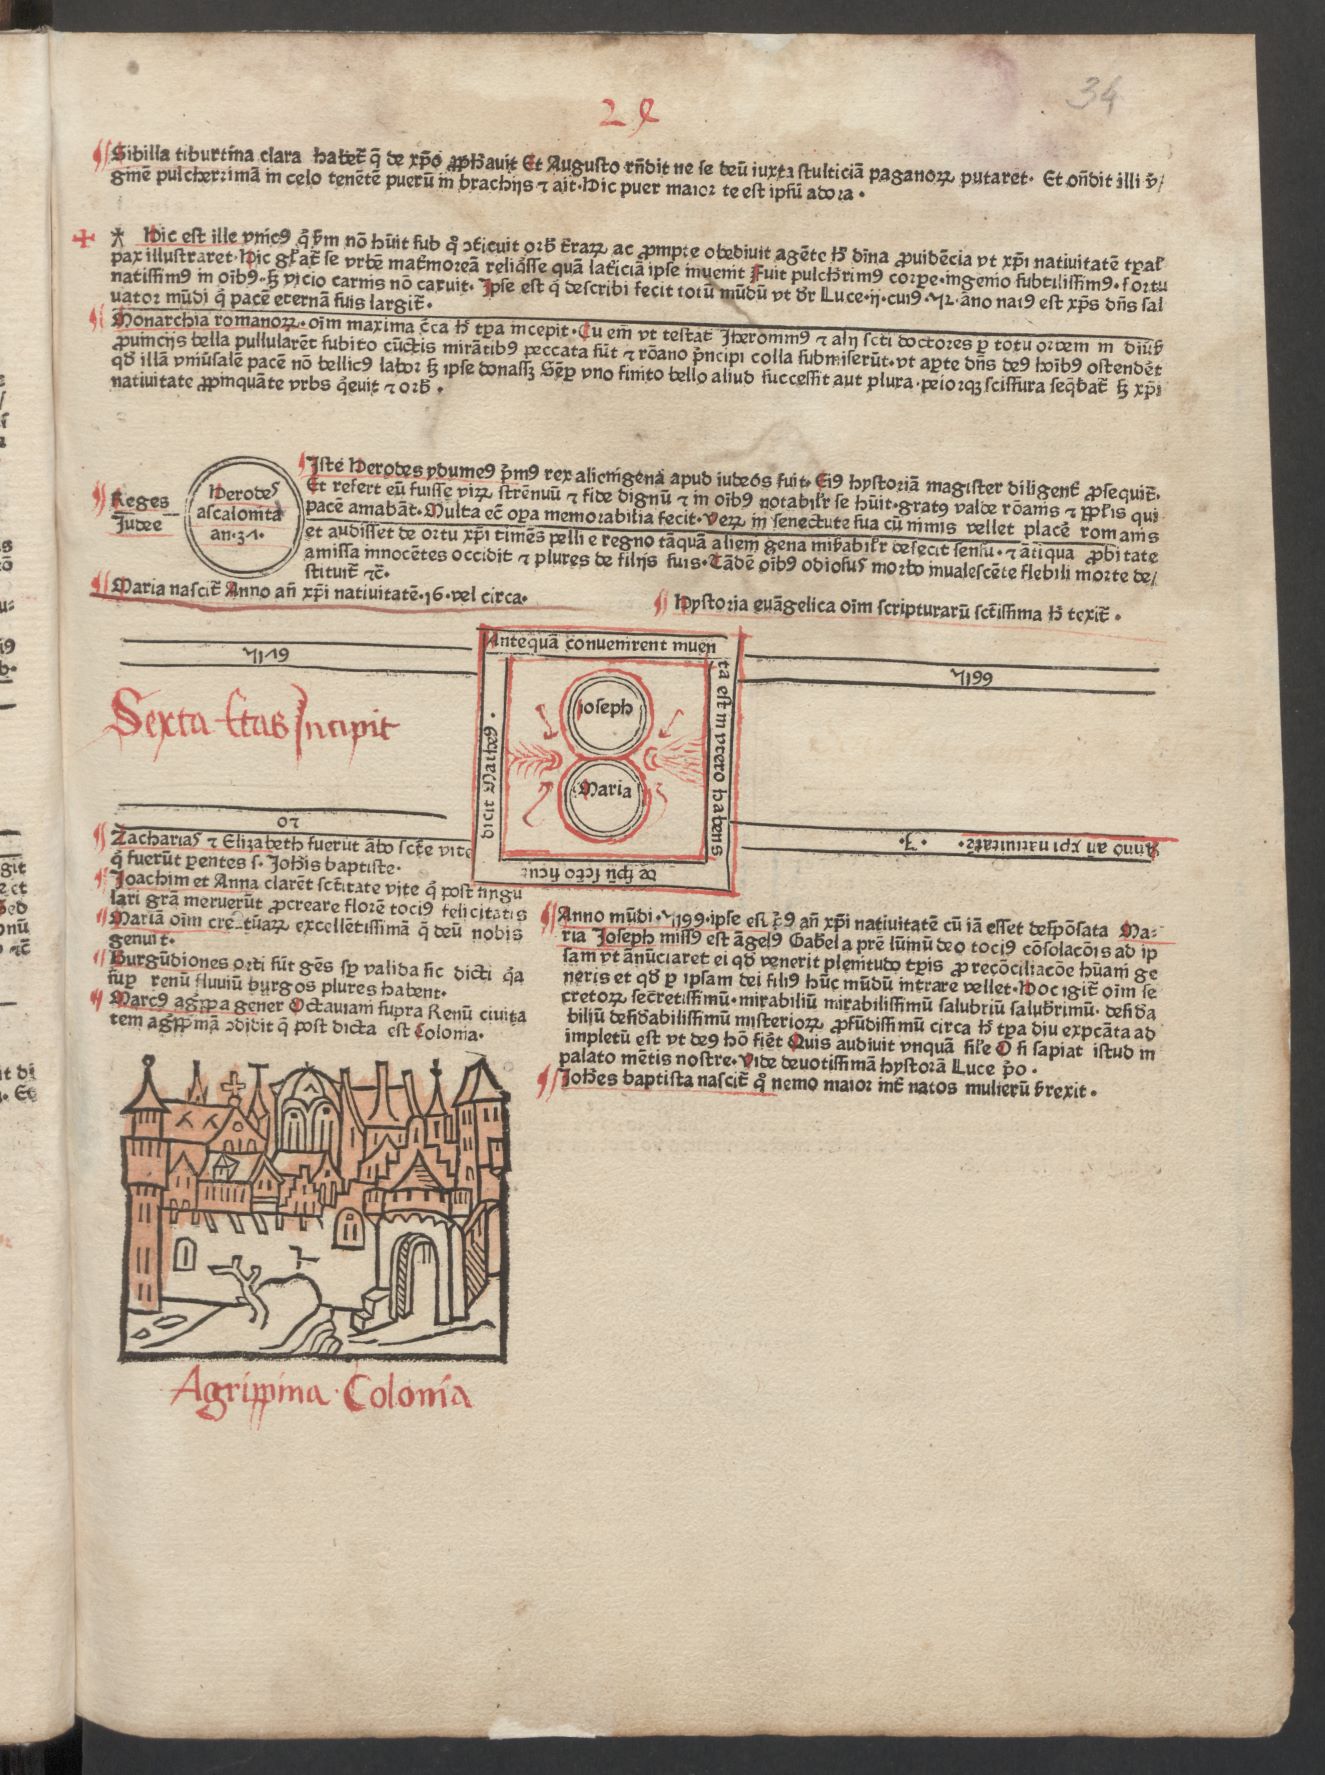 34
2ꝭ
Sibilla tiburtina clara habet᷑ q̄ de xp̄o ꝓph̄auit Et Augusto rn̄dit ne se deū iuxta stulticiā paganoꝝ putaret· Et on̄dit illi v̄/
ginē pulcherrimā in celo tenētē puerū in brachijs ⁊ ait· Hic puer maior te est ipsū adora·
Hic est ille vnicꝰ q̄ p̄m nō hūit sub q̊ ↄticuit orb̄ t̄raꝝ ac ꝓmpte obediuit agēte h̄ dīna ꝓuidēcia vt xp̄i natiuitatē tꝑal̄
pax illustraret· Hic gl̄iat᷑ se vrbē mat̄moreā reliq̄sse quā lat̄iciā ipse inuenit Fuit pulch̄rimꝰ corꝑe·ingenio subtilissimꝰ·fortu
natissimꝰ in oībꝰ·sꝫ vicio carnis nō caruit· Ipse est q̄ describi fecit totū mūdū vt dr̄ Luce·ij·cuiꝰ·ꝝ·āno natꝰ est xp̄s dn̄s sal
uator mūdi q̄ pacē eternā suis largit᷑·
Monarchia romanoꝝ·oīm maxima c̄ca h̄ tꝑa incepit· Cū em̄ vt testat᷑ Iheronimꝰ ⁊ alij sc̄ti doctores ꝑ totū orbem in diūs̄
ꝓuincijs bella pullularēt subito cūctis mirātibꝰ peccata sūt ⁊ rōano p̄ncipi colla submiserūt· vt aꝑte dn̄s deꝰ hoībꝰ ostendēt
qd̄ illā vniūsalē pacē nō bellicꝰ labor sꝫ ipse donassꝫ Sēꝑ vno finito bello aliud successit aut plura·peiorqꝫ scissura seq̄bat᷑ sꝫ xp̄i
natiuitate ꝓpinquāte vrbs q̄euit ⁊ orb̄·
Reges
Judee
Herodeˢ
ascalonita
an·37·
Iste Herodes ydumeꝰ p̄mꝰ rex alienigena apud iudeos fuit· Eiꝰ hystoriā magister diligent᷑ ꝓsequit᷑·
Et refert eū fuisse viꝝ strēnuū ⁊ fide dignū ⁊ in oībꝰ notabilr̄ se hūit·gratꝰ valde rōanis ⁊ ꝓpl̄is qui
pacē amabāt· Multa ec̄ oꝑa memorabilia fecit· Veꝝ in senectute sua cū nimis vellet placē romanis
et audisset de ortu xp̄i timēs pelli e regno tāquā alienigena mirabilr̄ defecit sensu·⁊ ātiqua ꝓbitate
amissa innocētes occidit ⁊ plures de filijs suis· Tādē oībꝰ odiosuˢ morbo inualescēte flebili morte de/
stituit᷑ ⁊c̄·
Maria nascit᷑ Anno an̄ xp̄i natiuitatē·16·vel circa·
Hystoria euāgelica oīm scripturarū sct̄issima h̄ texit᷑·
Antequā conuenirent inuen
ta est in vtero habens
de sp̄u sc̄to sicut
dicit Matheꝰ·
ioseph
Maria
Sexta Etas Incipit
20
Anno an̄ xp̄i natiuitatē· ·3·
Zachariaˢ ⁊ Elizabeth fuerūt ābo sct̄e vite
q̄ fuerūt ꝑentes s· Joh̄is baptiste·
Joachim et Anna clarēt sct̄itate vite q̄ post singu
lari grā meruerūt ꝓcreare florē tociꝰ felicitatis
Mariā oīm creatūaꝝ excellētissimā q̄ deū nobis
genuit·
Burgūdiones orti sūt gēs sꝑ valida sic dicti q̄a
suꝑ renū fluuiū burgos plures habent·
Marcꝰ agrīppa gener Octauiani supra Renū ciuita
tem agrīppinā ↄdidit q̄ post dicta est Colonia·
Agrippina · Colonia
Anno mūdi·5199·ipse est c̄ꝰ an̄ xp̄i natiuitatē cū iā esset despōsata Ma-
ria Joseph missꝰ est āgelꝰ Gab̄el a prē lūinū deo tociꝰ cōsolacōis ad ip
sam vt ānūciaret ei qd̄ venerit plenitudo tꝑis ꝓ recōciliacōe hūani ge
neris et qd̄ ꝑ ipsam dei filiꝰ hūc mūdū intrare vellet· Hoc igit᷑ oīm se
cretoꝝ secretissimū·mirabiliū mirabilissimū salubriū salub̄rimū·desid̄a
biliū desid̄abilissimū misterioꝝ ꝓfūdissimū circa h̄ tꝑa diu expc̄ata ad
impletū est vt deꝰ hō fiēt Quis audiuit vnquā sil̄e O si sapiat istud in
palato mētis nostre· Vide deuotissimā hystorā Luce p̄o·
Joh̄es baptista nascit᷑ q̊ nemo maior int̄ natos mulierū s̄rexit·